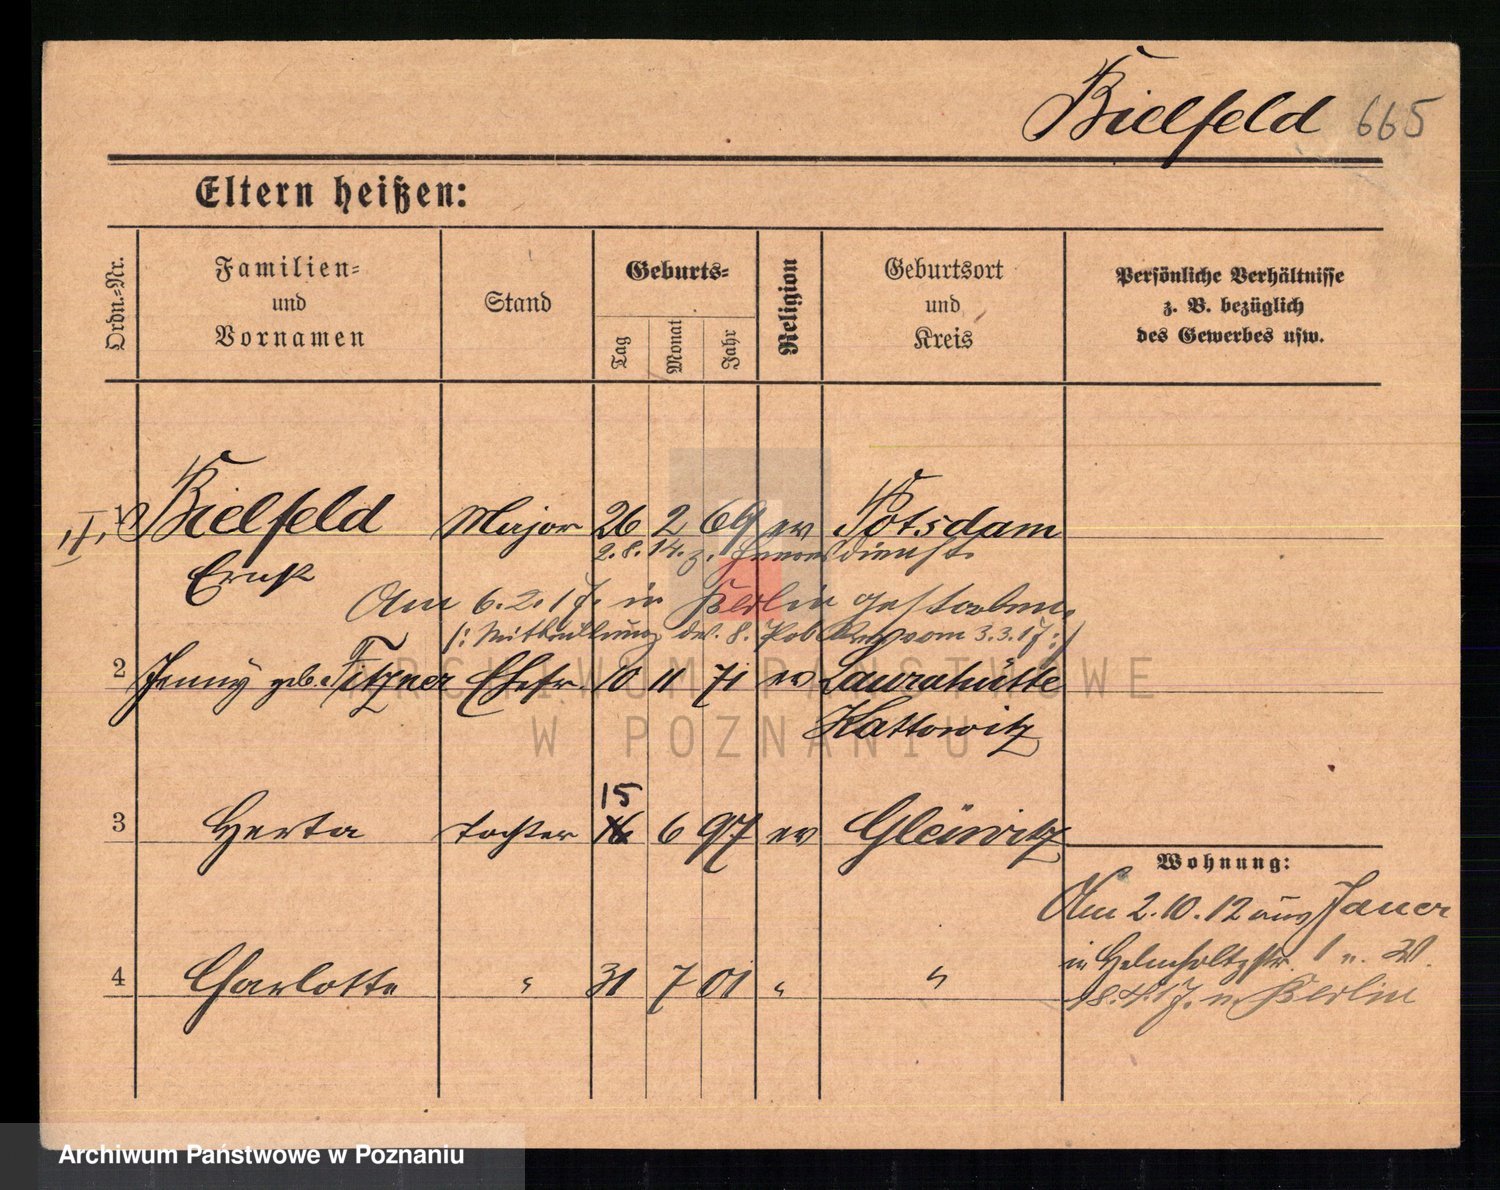 Bielfeld 665
Eltern heißen:
Ordn.=Nr.
Familien=
und
Vornamen
Stand
Geburts=
Tag
Monat
Jahr
Religion
Geburtsort
und
Kreis
Persönliche Verhältnisse
z. B. bezüglich
des Gewerbes usw.
1 Bielfeld Major 26 2 69 ev Potsdam
Ernst
2.8.14. z. Heeresdienst
Am 6.2.17. in Berlin gestorben.
2 Jenny geb. Fitzner Ehefr. 10 11 71 ev Laurahütte
Kattowitz
15
3 Herta Tochter 16 6 97 ev Gleiwitz
Wohnung:
Am 2.10.12 aus Jauer
in Helmholtzstr. 1 u. W.
4 Charlotte " 31 7 01 " "
18.4.17. n. Berlin
ARCHIWUM PAŃSTWOWE
W POZNANIU
Archiwum Państwowe w Poznaniu